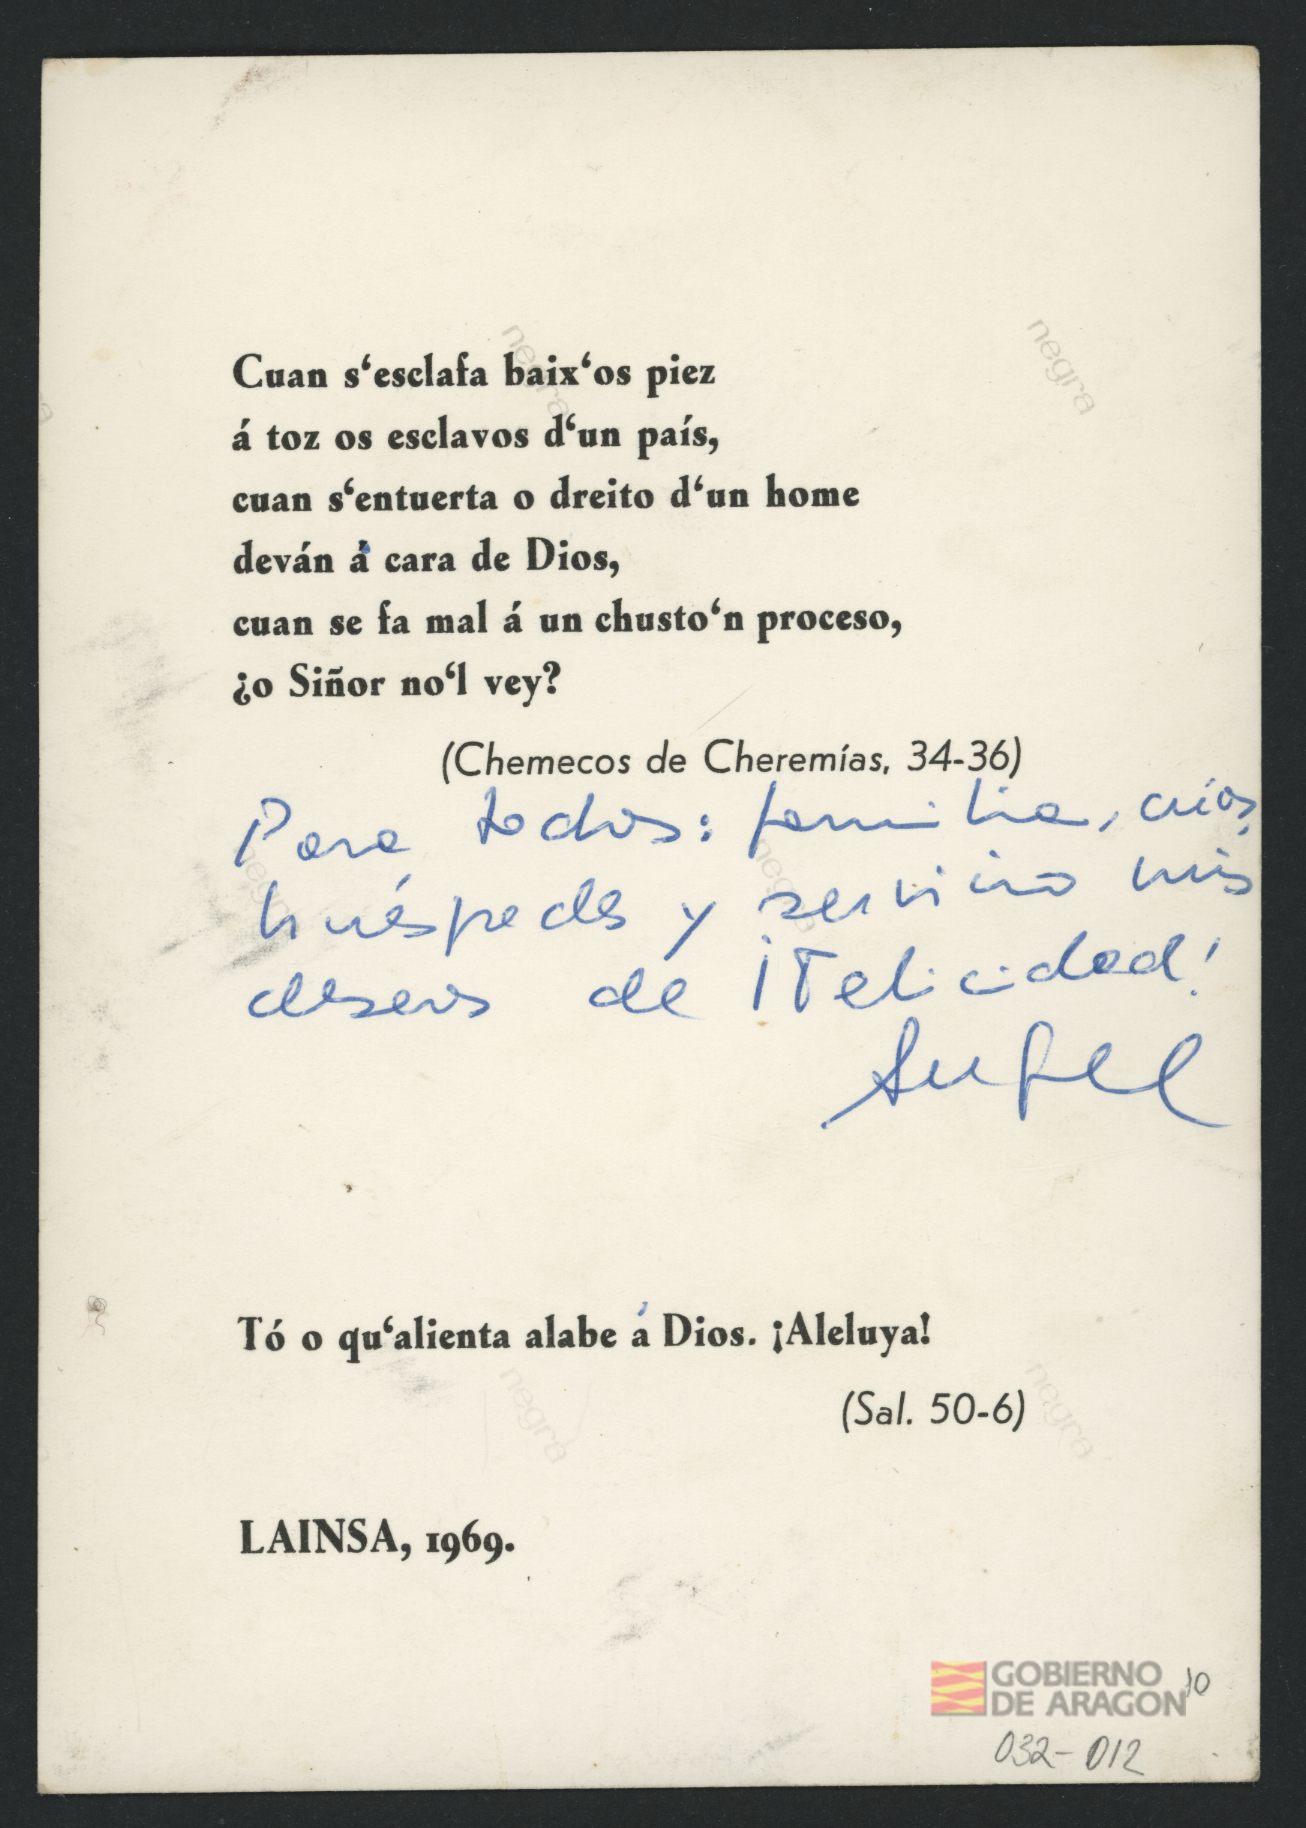 Cuan s‘esclafa baix‘os piez
á toz os esclavos d‘un país,
cuan s‘entuerta o dreito d‘un home
deván á cara de Dios,
cuan se fa mal á un chusto‘n proceso,
¿o Siñor no‘l vey?
(Chemecos de Cheremías, 34-36)
Para todos: familia, críos,
huéspedes y servicio mis
deseos de ¡Felicidad!
Angel
Tó o qu‘alienta alabe á Dios. ¡Aleluya!
(Sal. 50-6)
LAINSA, 1969.
GOBIERNO
DE ARAGON
10
032-012
negra
negra
negra
negra
negra
negra